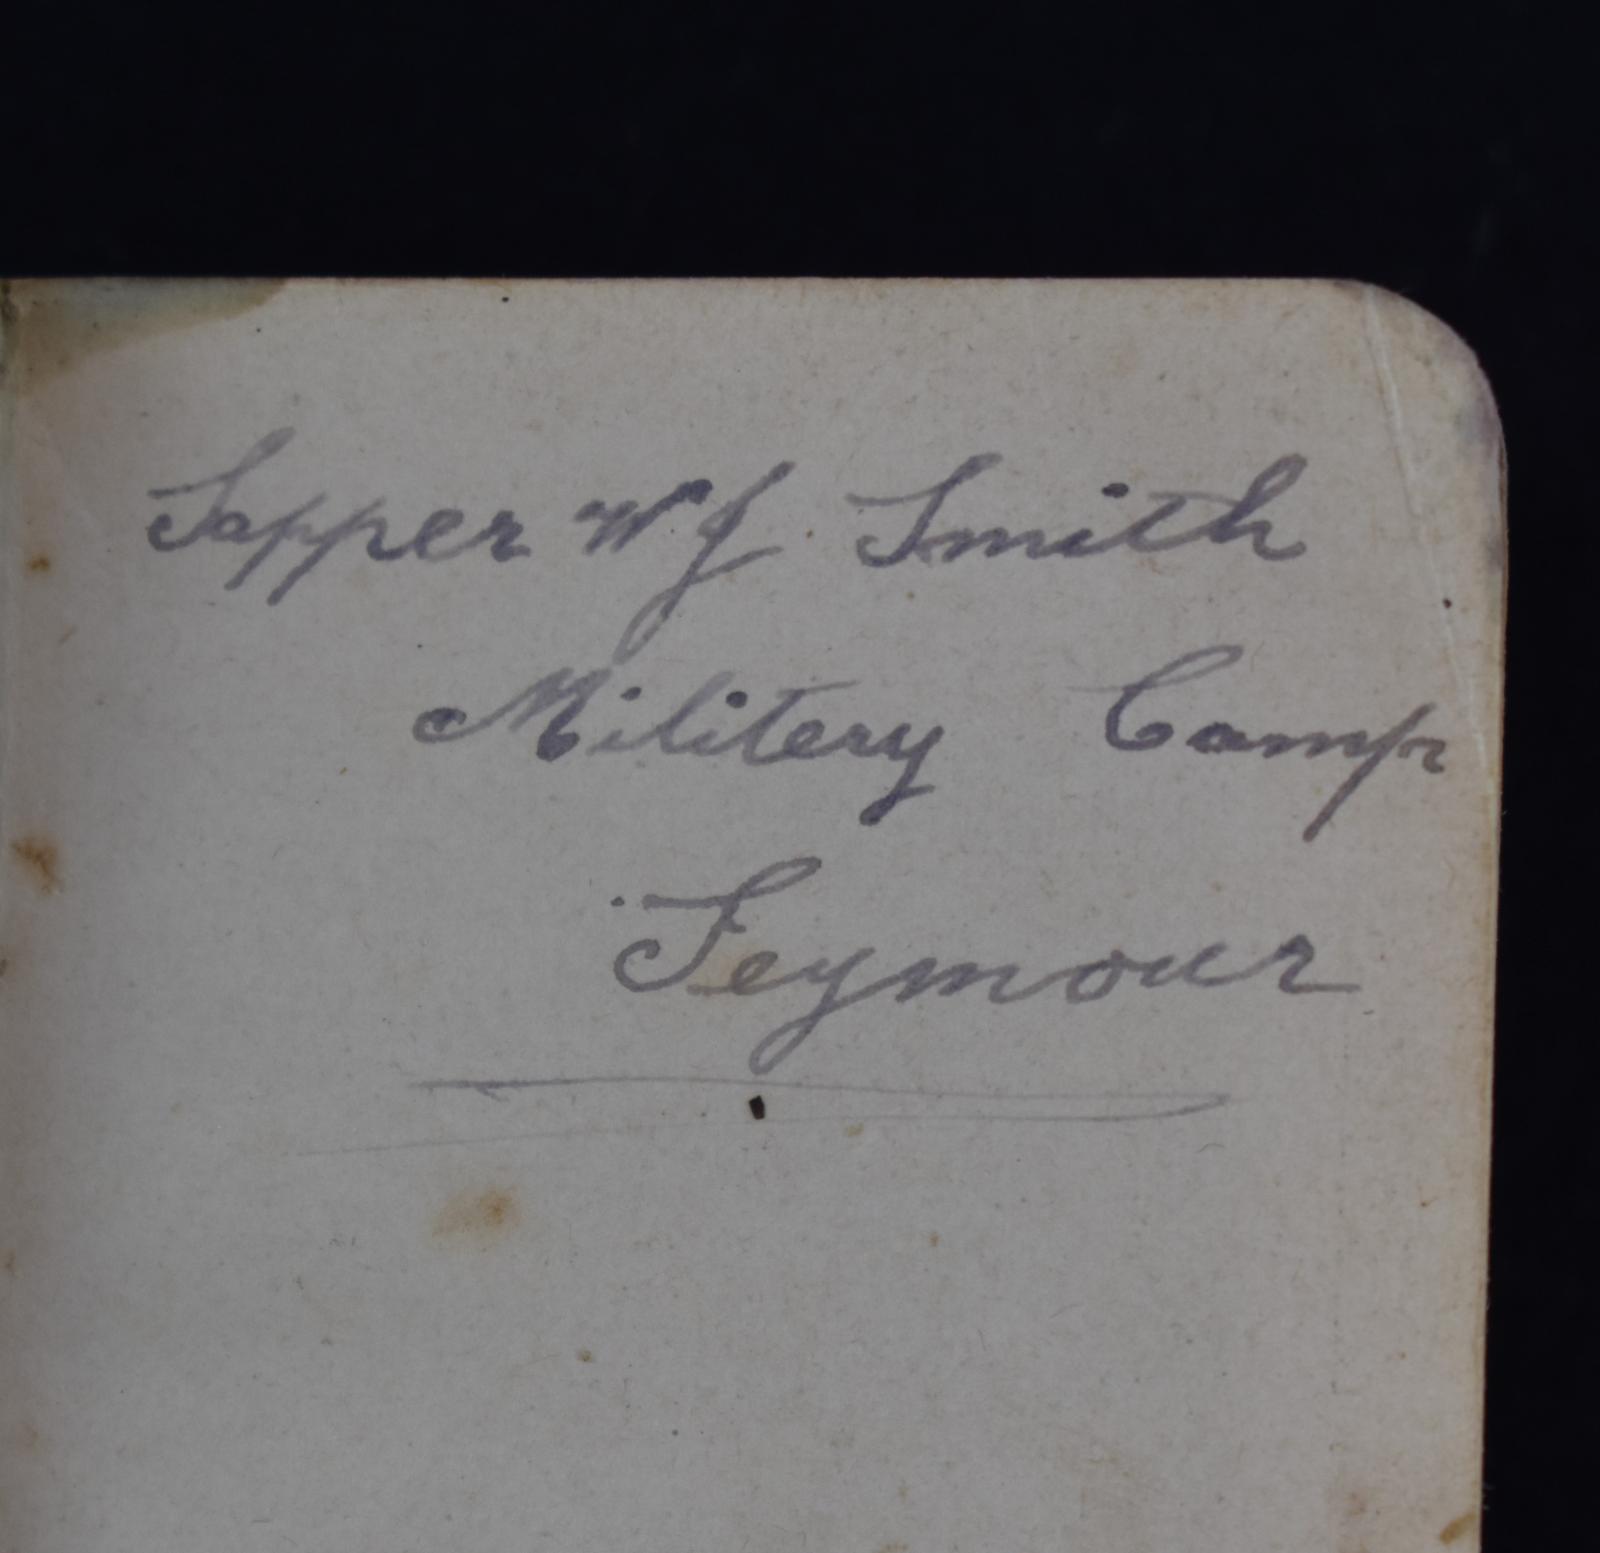 Sapper W J Smith
Militery Camp
Seymour